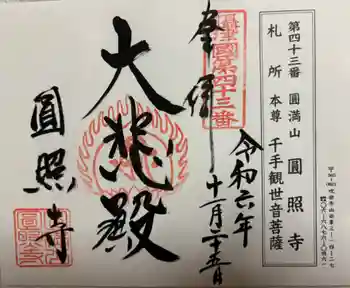 第四十三番 圓満山 圓照寺
札所 本尊 千手観世音菩薩
奉拝
攝津國第四十三番
令和六年
十一月二十五日
大悲殿
圓照寺